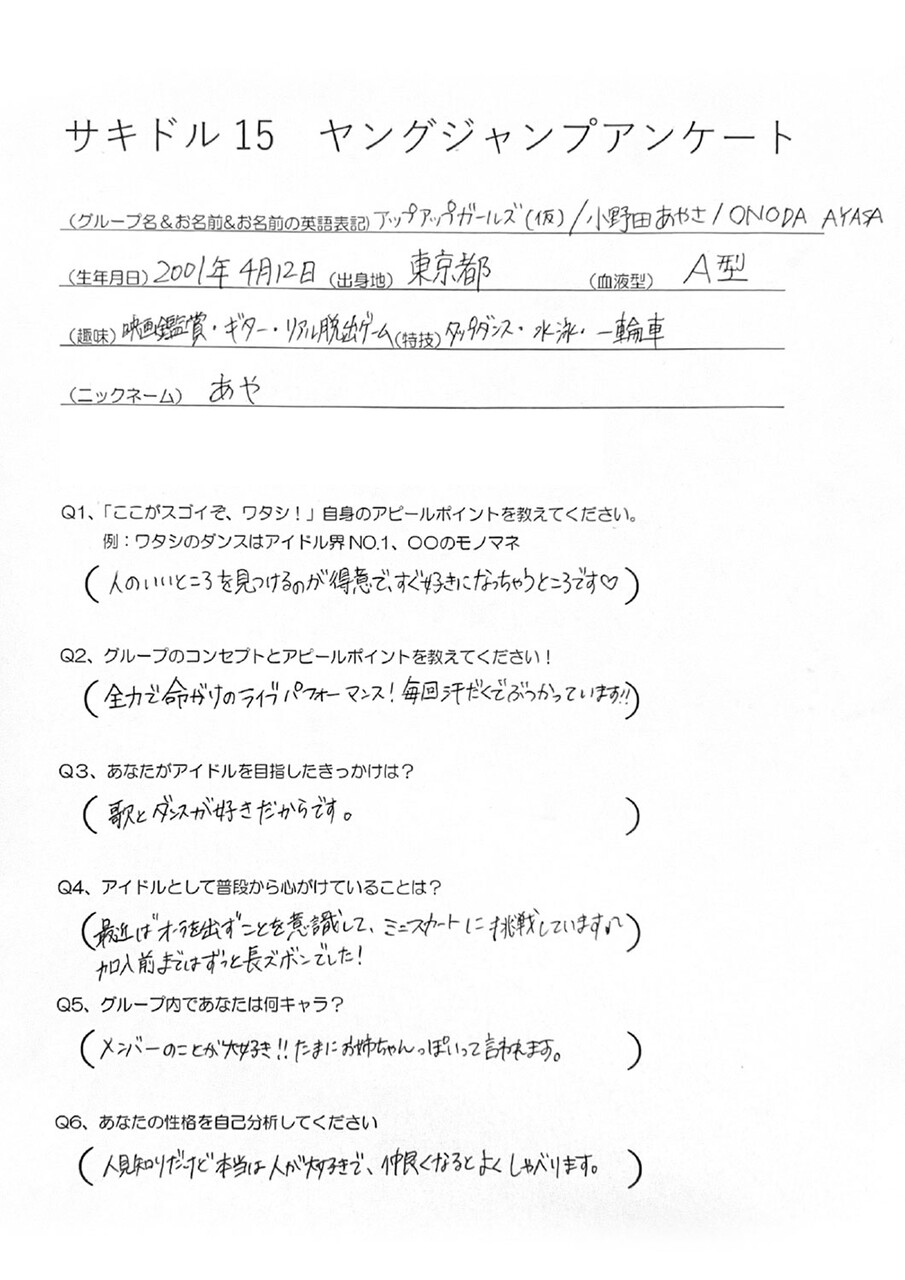 サキドル15 ヤングジャンプアンケート
(グループ名&お名前&お名前の英語表記) アップアップガールズ(仮)/小野田あやさ/ONODA AYASA
(生年月日) 2001年4月12日 (出身地) 東京都 (血液型) A型
(趣味) 映画鑑賞・ギター・リアル脱出ゲーム (特技) タップダンス・水泳・一輪車
(ニックネーム) あや
Q1、「ここがスゴイぞ、ワタシ!」自身のアピールポイントを教えてください。
例:ワタシのダンスはアイドル界NO.1、〇〇のモノマネ
(人のいいところを見つけるのが得意で、すぐ好きになっちゃうところです♡)
Q2、グループのコンセプトとアピールポイントを教えてください!
(全力で命がけのライブパフォーマンス!毎回汗だくでぶつかっています!!)
Q3、あなたがアイドルを目指したきっかけは?
(歌とダンスが好きだからです。)
Q4、アイドルとして普段から心がけていることは?
(最近はオーラを出すことを意識して、ミニスカートに挑戦しています♪)
加入前まではずっと長ズボンでした!
Q5、グループ内であなたは何キャラ?
(メンバーのことが大好き!!たまにお姉ちゃんっぽいって言われます。)
Q6、あなたの性格を自己分析してください
(人見知りだけど本当は人が大好きで、仲良くなるとよくしゃべります。)